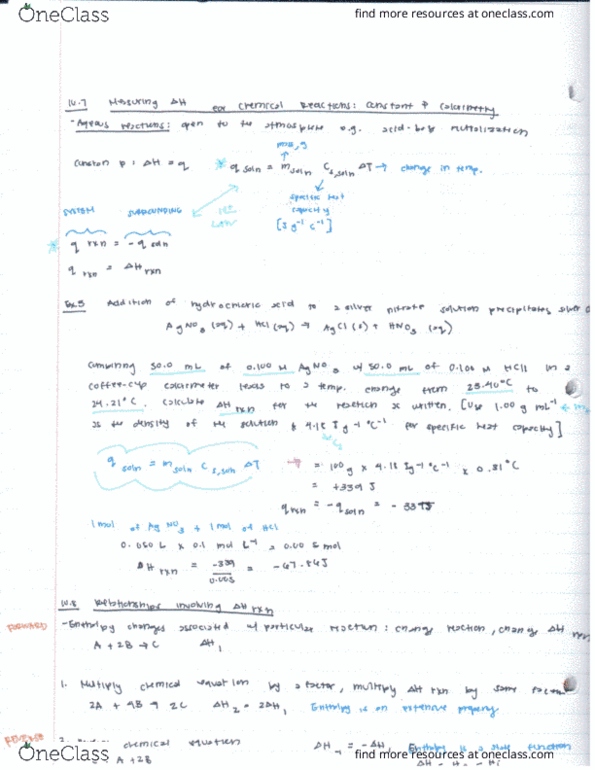 OneClass
find more resources at oneclass.com
10.7 Measuring ΔH for Chemical Reactions: Constant P Calorimetry
- Aqueous reactions: open to the atmosphere e.g. acid-base
mass, g
constant p : ΔH = q * q soln = m soln C s, soln ΔT → change in temp.
specific heat
capacity
[J g⁻¹ C⁻¹]
SYSTEM SURROUNDING 1st
LAW
* q rxn = - q soln
q rxn = ΔH rxn
Ex.5 Addition of hydrochloric acid to a silver nitrate solution precipitates silver
AgNO₃ (aq) + HCl (aq) → AgCl (s) + HNO₃ (aq)
Combining 50.0 mL of 0.100 M AgNO₃ w/ 50.0 mL of 0.100 M HCl in a
coffee-cup calorimeter leads to a temp. change from 23.40°C to
24.21°C. Calculate ΔH rxn for the reaction as written. [Use 1.00 g mL⁻¹
as the density of the solution & 4.18 J g⁻¹ °C⁻¹ for specific heat capacity]
q soln = m soln C s, soln ΔT = 100g × 4.18 Jg⁻¹ °C⁻¹ × 0.81°C
= +339 J
q rxn = - q soln = - 339J
1 mol of AgNO₃ + 1 mol of HCl
0.050 L × 0.1 mol L⁻¹ = 0.005 mol
ΔH rxn = -339 / 0.005 = -67.8
10.8 Relationships involving ΔH rxn
FORWARD - Enthalpy changes associated w/ particular reaction : change reaction, change ΔH rxn
A + 2B → C ΔH₁
1. Multiply chemical equation by a factor, multiply ΔH rxn by same factor
2A + 4B → 2C ΔH₂ = 2ΔH₁ Enthalpy is an extensive property
REVERSE 2. chemical equation ΔH = -ΔH₁ Enthalpy is a state function
A + 2B
OneClass
find more resources at oneclass.com